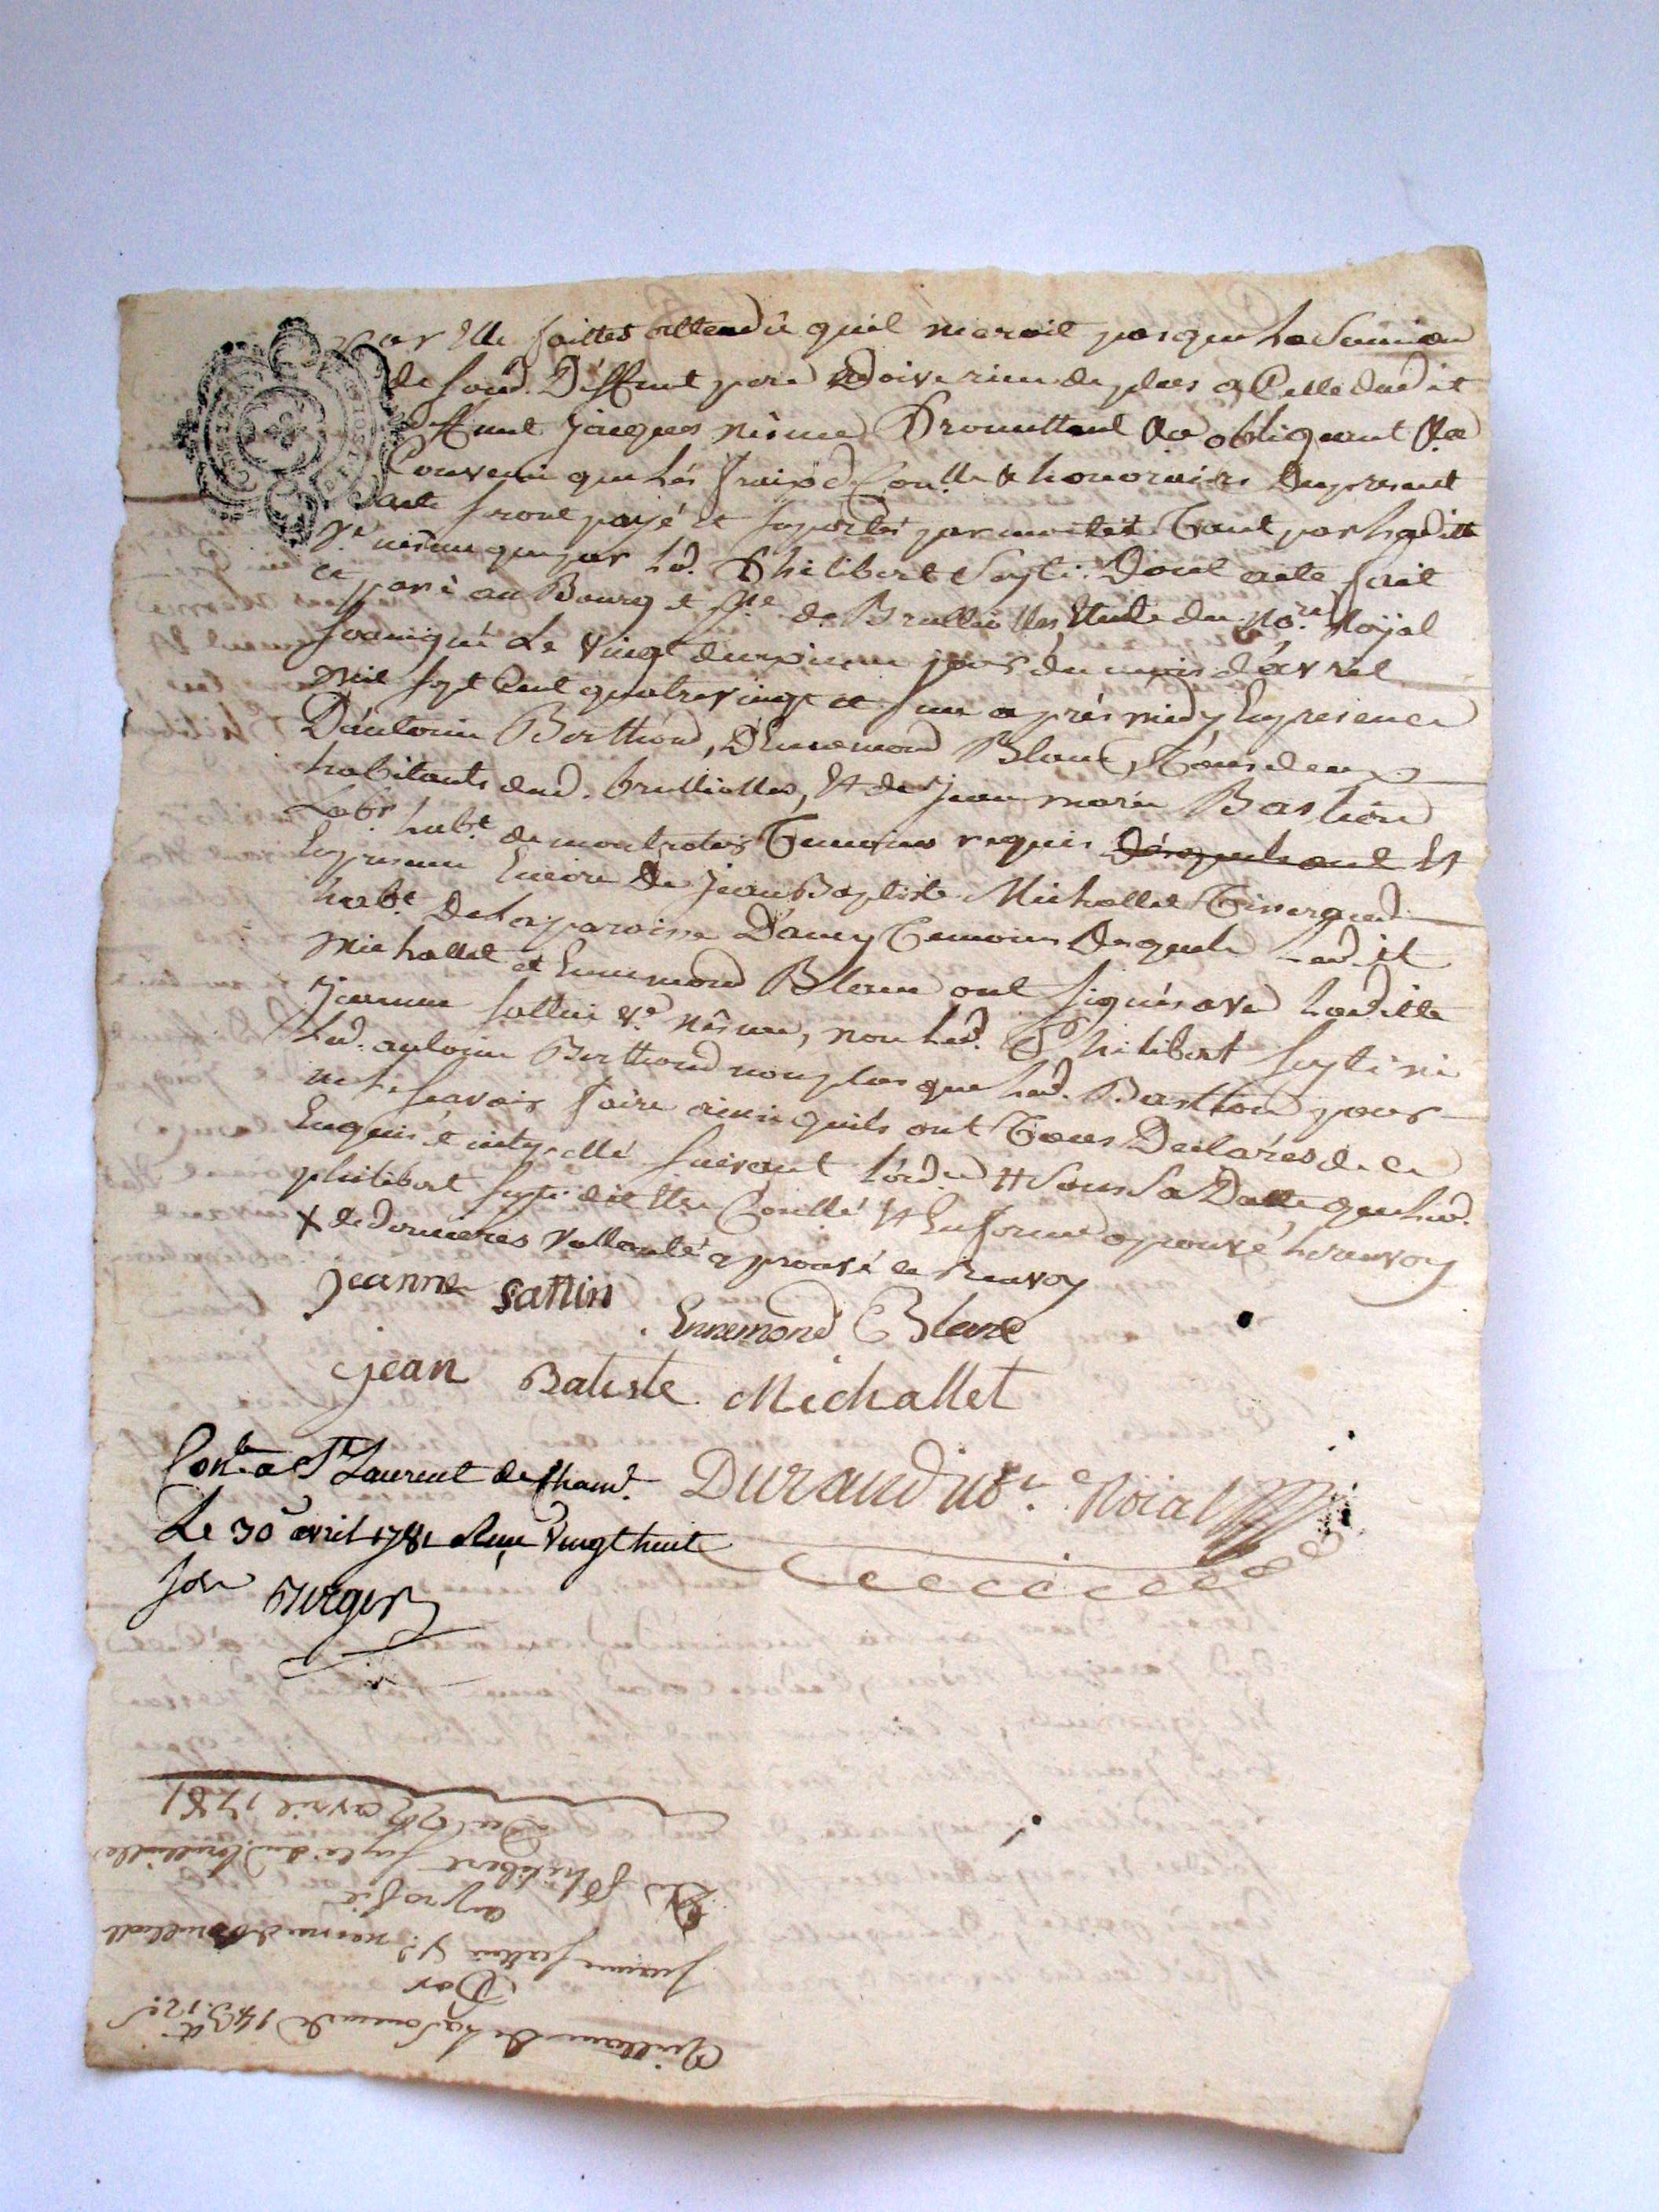 par Elle faittes attendû quil ne croit pas que La
de fond. Déffunt pere doive rien de plus a Celle dudit
deffunt jacques néime Promettant &a obligeant &a
Convenu que Les frais de Con.lle & honoraires Du present
acte seront payé et suportés par moitié Tant par Laditte
v.e néime que par Led. Philibert Seyti. Dont acte fait
et passé au Bourg et p.sse de Brullioles, Etude du No.re Royal
soussigné Le vingt deuxieme jour du mois d'avril
mil sept Cent quatrevingt et un après midy En presence
D'antoine Berthond, D'Ennemond Blanc, Tous deux
habitants dud. brulliolles, Et de jean marie Bastion
Lab.r hab.t de montrotier Temoins requis Desquels ont Et
En presence Encore De jean Baptiste Michallet Tisserand
hab.t De La paroisse D'ancy Temoins Desquels Ledit
Michallet et Ennemond Blanc ont signés avec Laditte
jeanne sattin v.e néime, non Led. Philibert Seyti ni
Led. antoine Berthond non plus que Led. Bastion pour
ne Le sçavoir faire ainsi quils ont Tous Declarés de ce
Enquis et interpellé suivant L'ord.ce # sous sa Datte que Led.
philibert Seyti dit Etre Conllé Et En forme aprouvé Le renvoy
X de dernieres vollonté aprouvé ce Renvoy
jeanne sattin
Ennemond Blanc
jean Batiste Michallet
Con.lé a St Laurent de Cham.t
Le 30 avril 1781 Reçu vingt huit
sols Berger
Durand no.re Roial
Quittance De La Somme de 143 # 12 s
Par
jeanne sattin v.e néime de brulliolle
au profit
De Philibert Seyti dud. brulliolle
Du 22 avril 1781